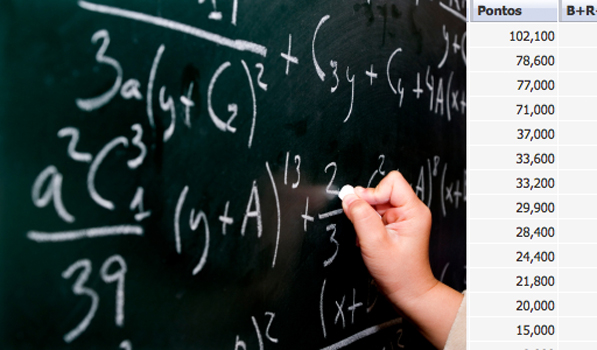 11
3a(y+C₂)² + C₃y + C₄ + 4A(x+
y+C
a²C₁³ (y+A)¹³ + 2/3 A)⁸ (x+
39
(x+
)²
Pontos B+R
102,100
78,600
77,000
71,000
37,000
33,600
33,200
29,900
28,400
24,400
21,800
20,000
15,000